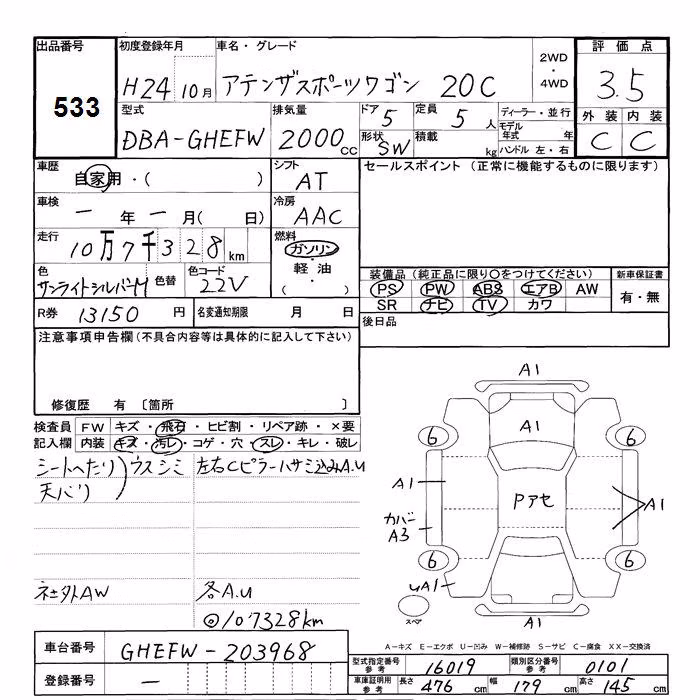 出品番号 初度登録年月 車名・グレード 2WD・4WD 評価点
533 H24 10月 アテンザスポーツワゴン 20C 3.5
型式 排気量 ドア 定員 ディーラー・並行 外装 内装
DBA-GHEFW 2000cc 5 5人 モデル年式 年 C C
形状 SW 積載 kg ハンドル 左・右
車歴 自家用・( ) シフト AT セールスポイント (正常に機能するものに限ります)
車検 ー年ー月( 日) 冷房 AAC
走行 10万7千328km 燃料 ガソリン・軽油・( )
色 サンライトシルバーM 色替 色コード 22V 装備品 (純正品に限り○をつけてください) 新車保証書
PS PW ABS エアB AW 有・無
SR ナビ TV カワ
R券 13150円 名変通知期限 月 日 後日品
注意事項申告欄(不具合内容等は具体的に記入して下さい)
修復歴 有 〔箇所 〕
検査員 FW キズ・飛石・ヒビ割・リペア跡・×要
記入欄 内装 キズ・汚レ・コゲ・穴・スレ・キレ・破レ
シートヘたり
天バリ
ウスシミ 左右Cピラーハサミ込みA.U
社外AW 各A.U
◎107328km
A1
A1
6 6
A1 Pアセ A1
カバー
A3
6 6
UA1
スペア A1
A-キズ E-エクボ U-凹み W-補修跡 S-サビ C-腐食 XX-交換済
車台番号 GHEFW-203968
登録番号 ー
型式指定番号 参考 16019 類別区分番号 参考 0101
車庫証明用 参考 長さ 476cm 幅 179cm 高さ 145cm